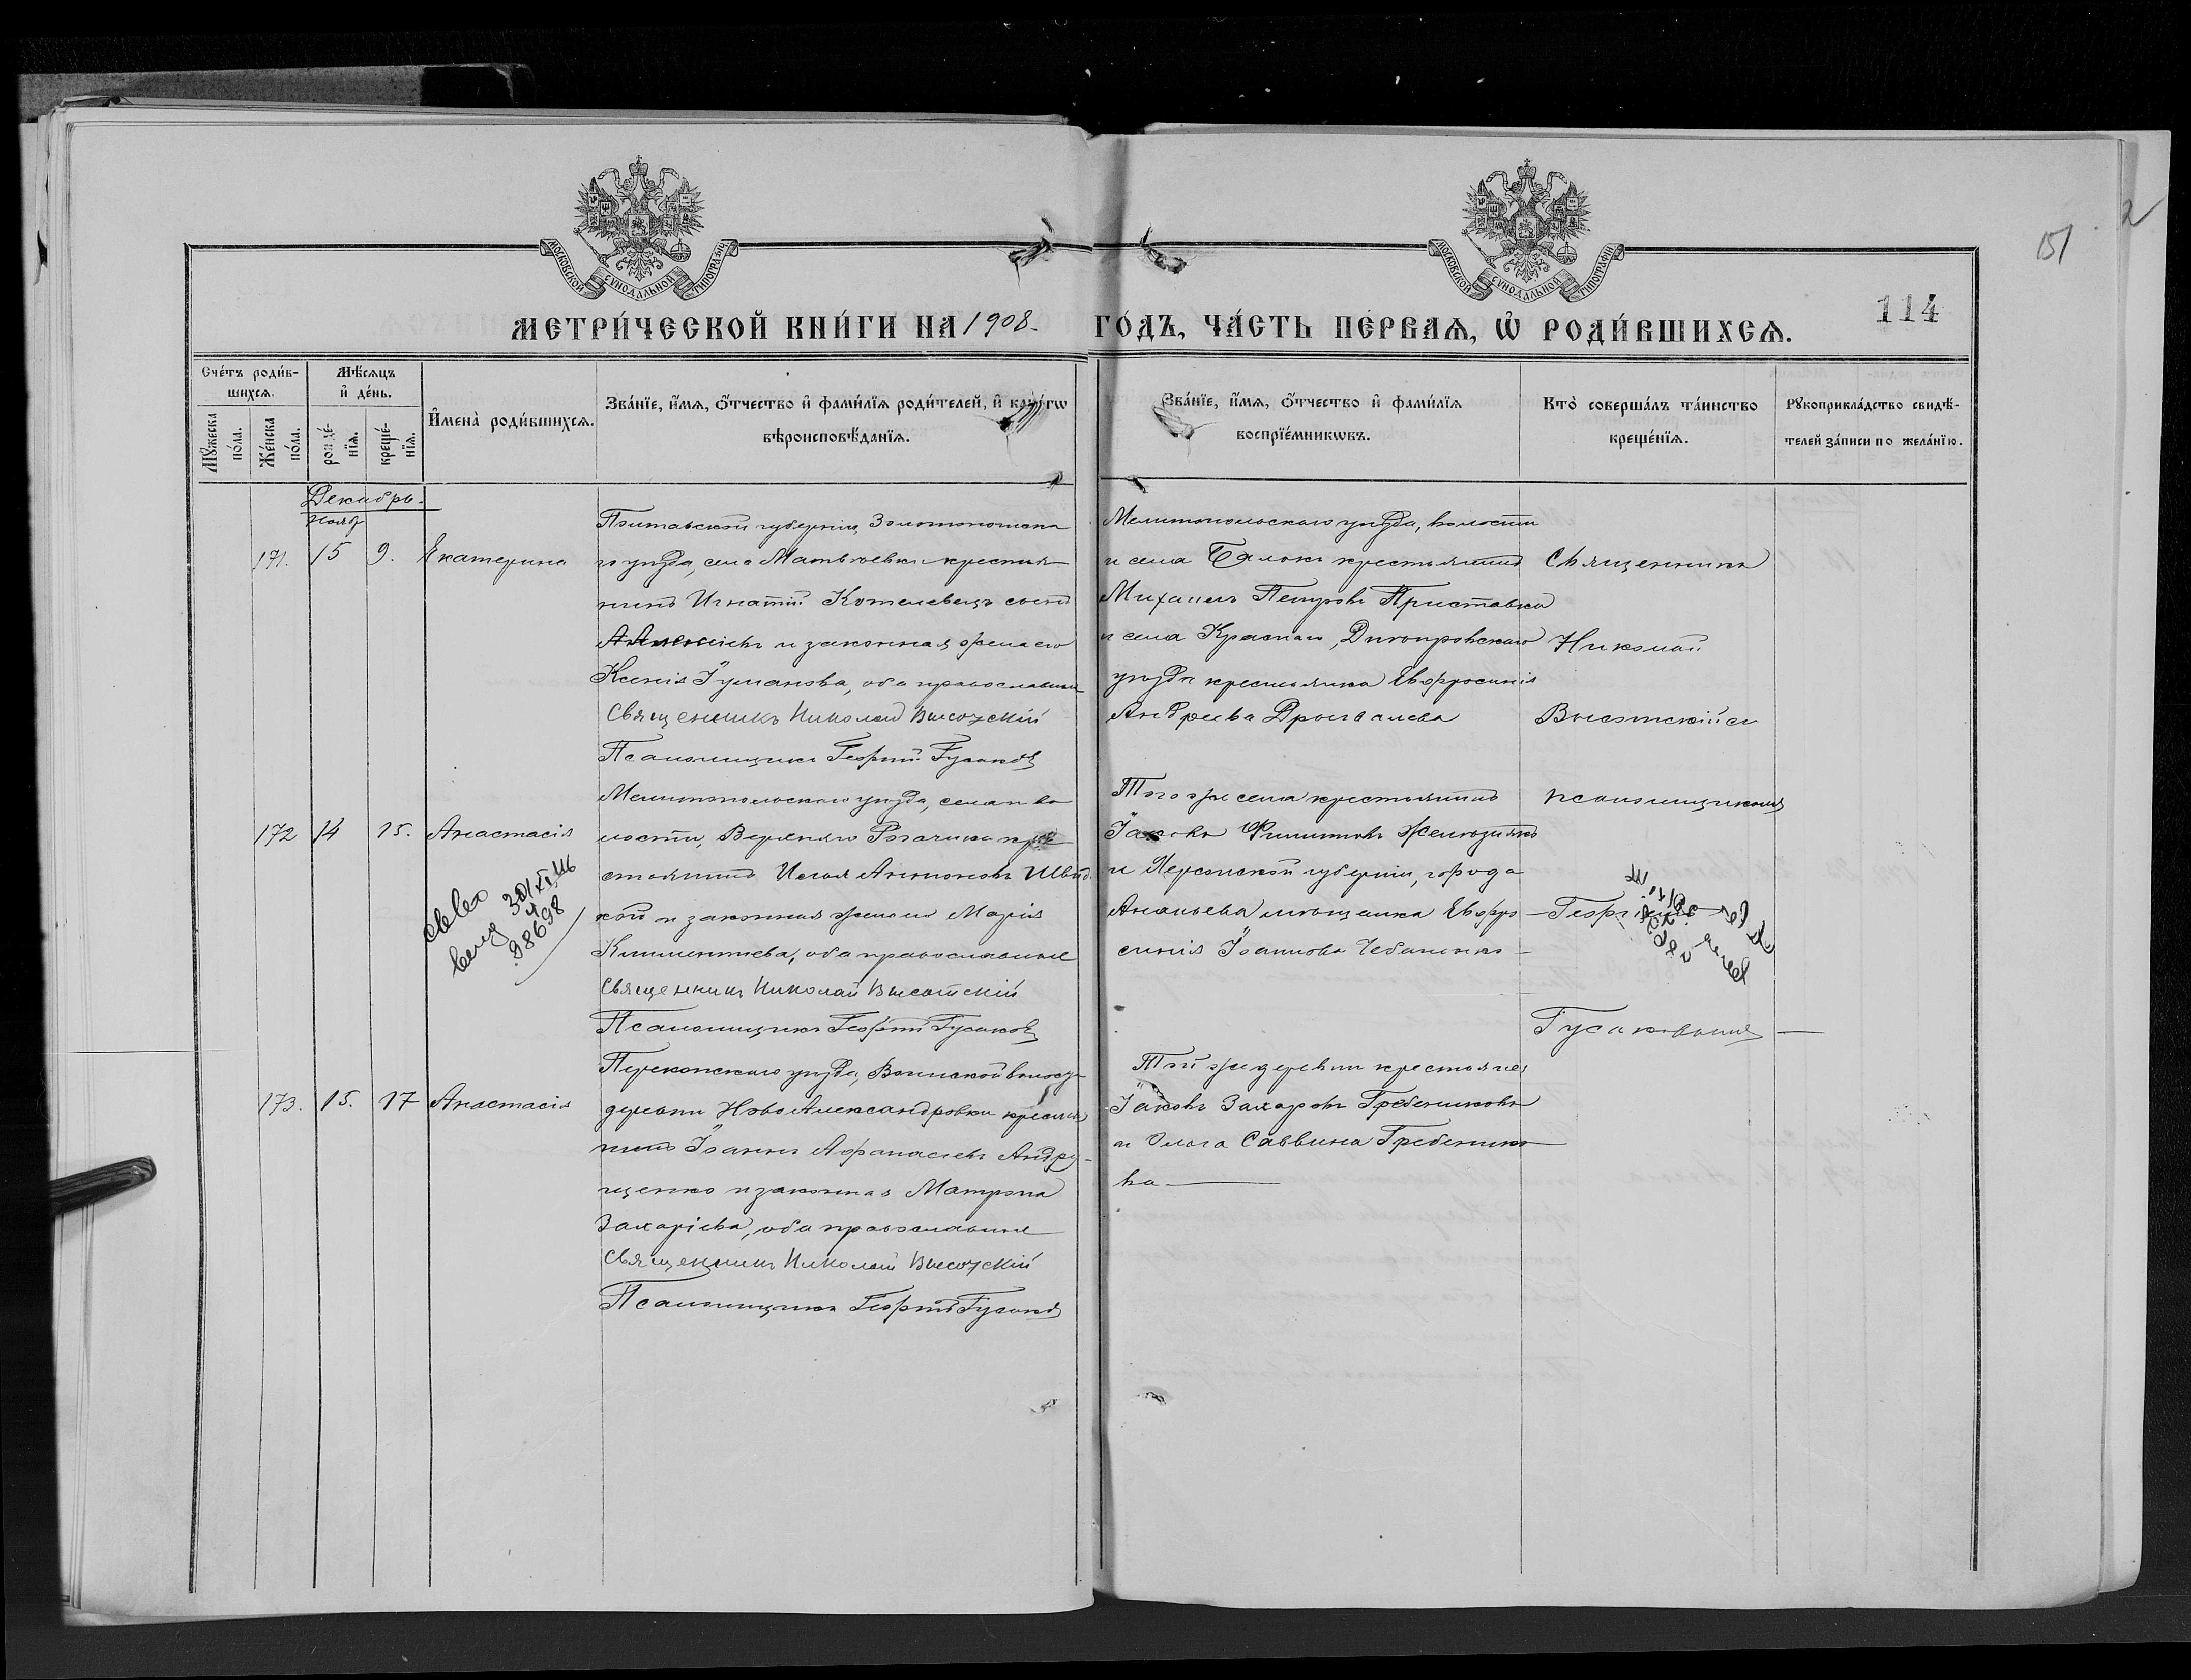 151
2
114
МОСКОВСКОЙ СѴНОДАЛЬНОЙ ТИПОГРАФІИ
МОСКОВСКОЙ СѴНОДАЛЬНОЙ ТИПОГРАФІИ
МЕТРИ́ЧЕСКОЙ КНИ́ГИ НА 1908 ГО́ДЪ, ЧА́СТЬ ПЕ́РВАѦ, Ѽ РОДИ́ВШИХСѦ.
Сче́тъ роди́в-
шихсѧ.
Мꙋ́жеска по́ла.
Же́нска по́ла.
Мѣ́сѧцъ
и҆ де́нь.
рожде́-
нїѧ.
креще́-
нїѧ.
И҆мена̀ роди́вшихсѧ.
Зва́нїе, и҆́мѧ, ѻ҆́тчество и҆ фами́лїѧ роди́телей, и҆ како́гѡ
вѣроисповѣ́данїѧ.
Зва́нїе, и҆́мѧ, ѻ҆́тчество и҆ фами́лїѧ
воспрїе́мникѡвъ.
Кто̀ соверша́лъ та́инство
креще́нїѧ.
Рꙋкоприкла́дство свидѣ́-
телей за́писи по жела́нїю.
Декабрь.
Нояб
171. 15 9. Екатерина
Полтавской губерніи, Золотоношска
го уѣзда, села Матвѣевки крестья
нинъ Игнатій Котелевецъ сынъ
Алексіевъ и законная жена его
Ксенія Іуліанова, оба православные
Священникъ Николай Высоцкій
Псаломщикъ Георгій Гусаковъ
Мелитопольскаго уѣзда, волости
и села Балокъ крестьянинъ
Михаилъ Петровъ Приставка
и села Краснаго, Днѣпровскаго
уѣзда крестьянка Евфросинія
Андреева
Священникъ
Николай
Высотскій съ
псаломщикомъ
Георгіемъ
Гусаковымъ
172 14 15. Анастасія
Мелитопольскаго уѣзда, села и во
лости, Верхняго Рогачика кре
стьянинъ Илья Антоновъ Швид
кой и законная жена его Марія
Климентіева, оба православные
Священникъ Николай Высотскій
Псаломщикъ Георгій Гусаковъ
Того же села крестьянинъ
Іаковъ Филипповъ
и Херсонской губерніи, города
Ананьева мѣщанка Евфро
синія Іоаннова Чебаненко
98698
173. 15. 17 Анастасія
Перекопскаго уѣзда, Воинской волости
деревни Ново Александровки крестья
нинъ Іоаннъ Афанасіевъ Андру-
щенко и законная Матрона
Захаріева, оба православные
Священникъ Николай Высоцкій
Псаломщикъ Георгій Гусаковъ
Той же деревни крестьяне
Іаковъ Захаровъ Гребениковъ
и Ольга Саввина Гребенико
ва